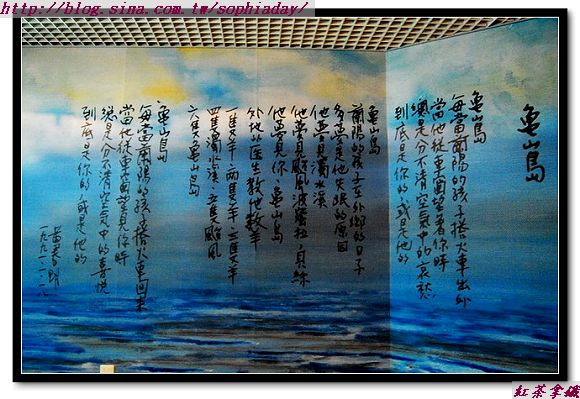 http://blog.sina.com.tw/sophiaday/
龜山島
龜山島
每當蘭陽的孩子搭火車出外
當他從車窗望著你時
總是分不清空氣中的哀愁
到底是你的,或是他的
龜山島
蘭陽的孩子在外鄉的日子
多夢是他失眠的原因
他夢見濁水溪
他夢見颱風波蜜拉、貝絲
他夢見你,龜山島
外地的医生教他數羊
一隻羊、兩隻羊、三隻羊
四隻濁水溪、五隻颱風
六隻龜山島
龜山島
每當蘭陽的孩子搭火車回來
當他從車窗望見你時
總是分不清空氣中的喜悅
到底是你的,或是他的
黃春明
紅茶拿鐵